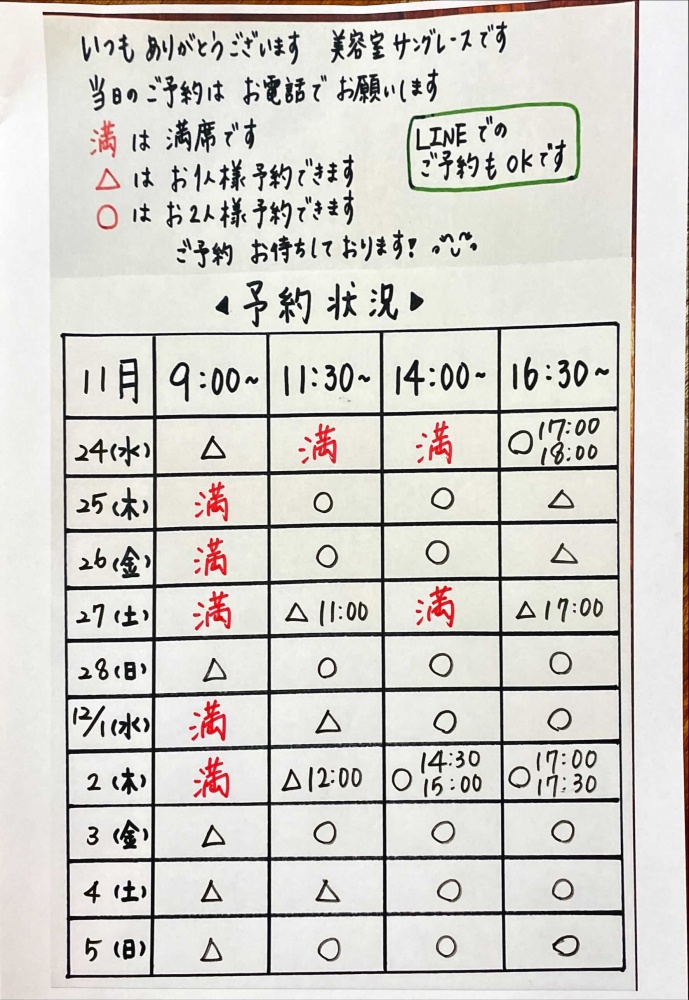 いつも ありがとうございます 美容室 サングレースです
当日のご予約は お電話で お願いします
満 は 満席です
△ は お1人様 予約できます
○ は お2人様 予約できます
ご予約 お待ちしております!
LINEでの
ご予約も OKです
◀予約状況▶
11月 9:00~ 11:30~ 14:00~ 16:30~
24(水) △ 満 満 ○17:00 18:00
25(木) 満 ○ ○ △
26(金) 満 ○ ○ △
27(土) 満 △11:00 満 △17:00
28(日) △ ○ ○ ○
12/1(水) 満 △ ○ ○
2(木) 満 △12:00 ○14:30 15:00 ○17:00 17:30
3(金) △ ○ ○ ○
4(土) △ △ ○ ○
5(日) △ ○ ○ ○